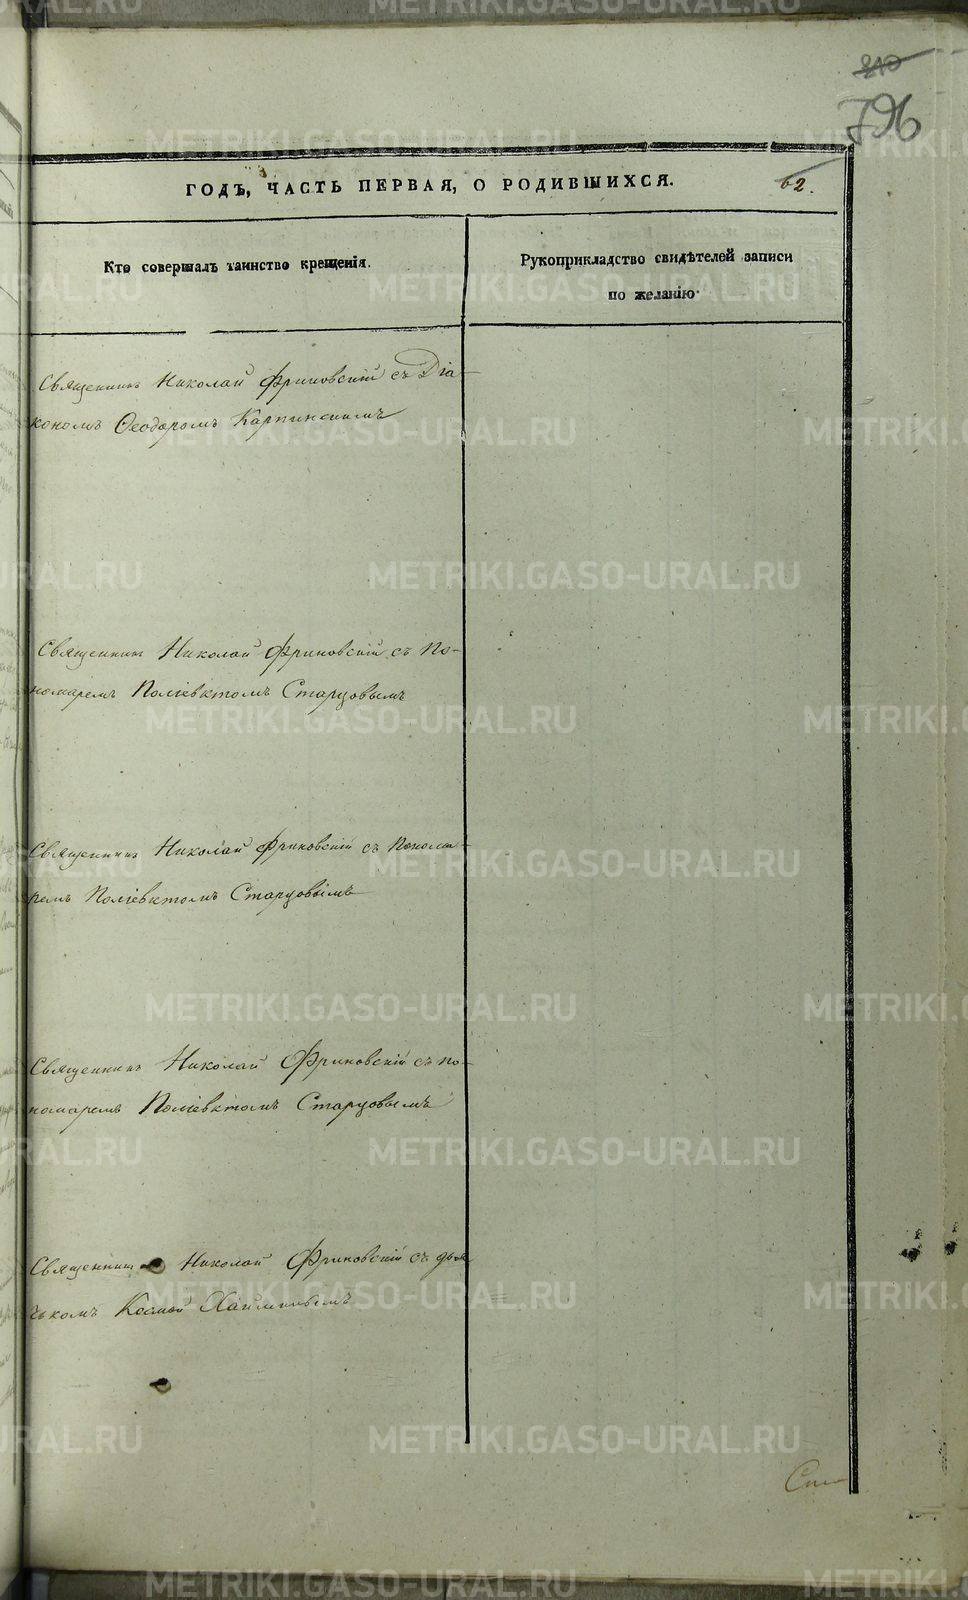 210
796
ГОДЪ, ЧАСТЬ ПЕРВАЯ, О РОДИВШИХСЯ.
62.
Кто совершалъ таинство крещенія.
Рукоприкладство свидѣтелей записи
по желанію
Священникъ Николай Фриновскій съ Діа-
кономъ Ѳеодоромъ Карпинскимъ
Священникъ Николай Фриновскій съ По-
номаремъ Поліевктомъ Старцовымъ
Священникъ Николай Фриновскій съ Понома-
ремъ Поліевктомъ Старцовымъ
Священникъ Николай Фриновскій съ по-
номаремъ Поліевктомъ Старцовымъ
Священникъ Николай Фриновскій съ дья-
чкомъ Космой
METRIKI.GASO-URAL.RU